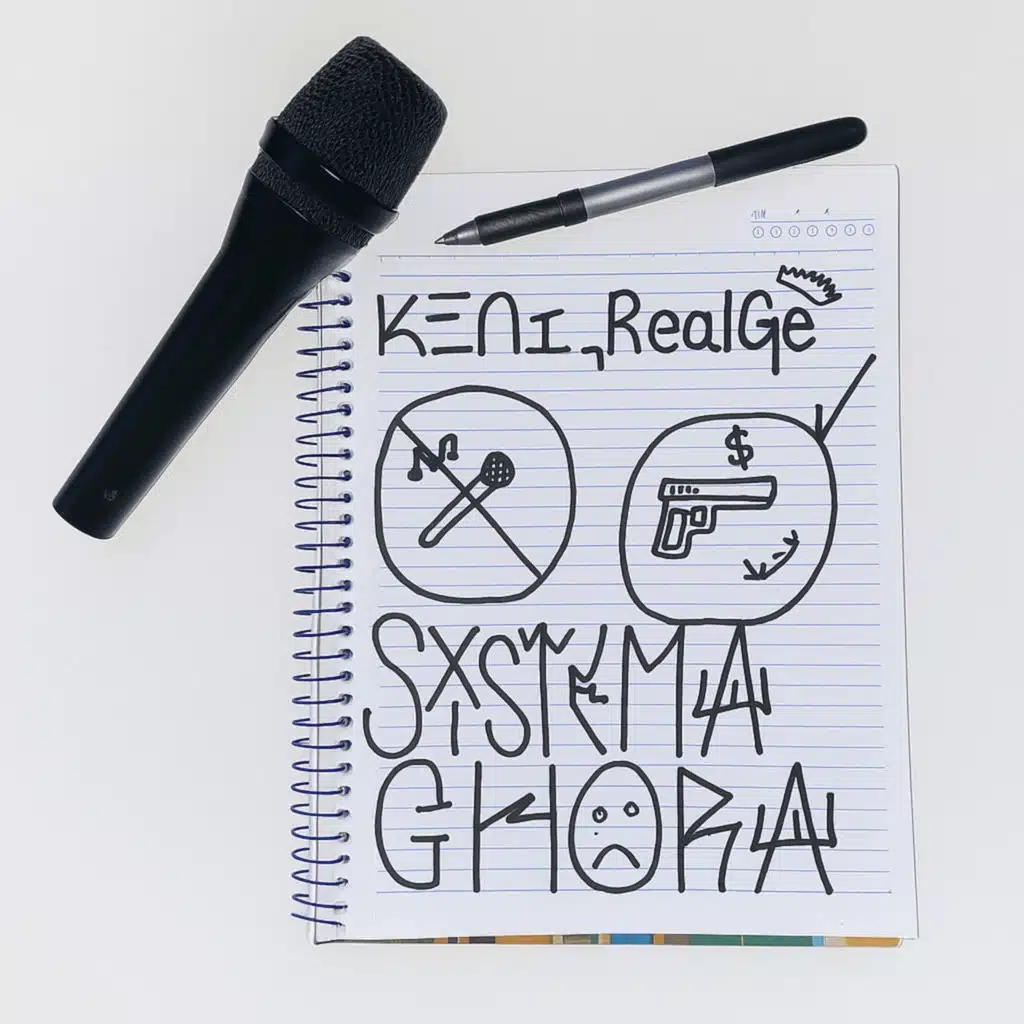 KENI, RealGe
$
SYSTEMA
GHORA